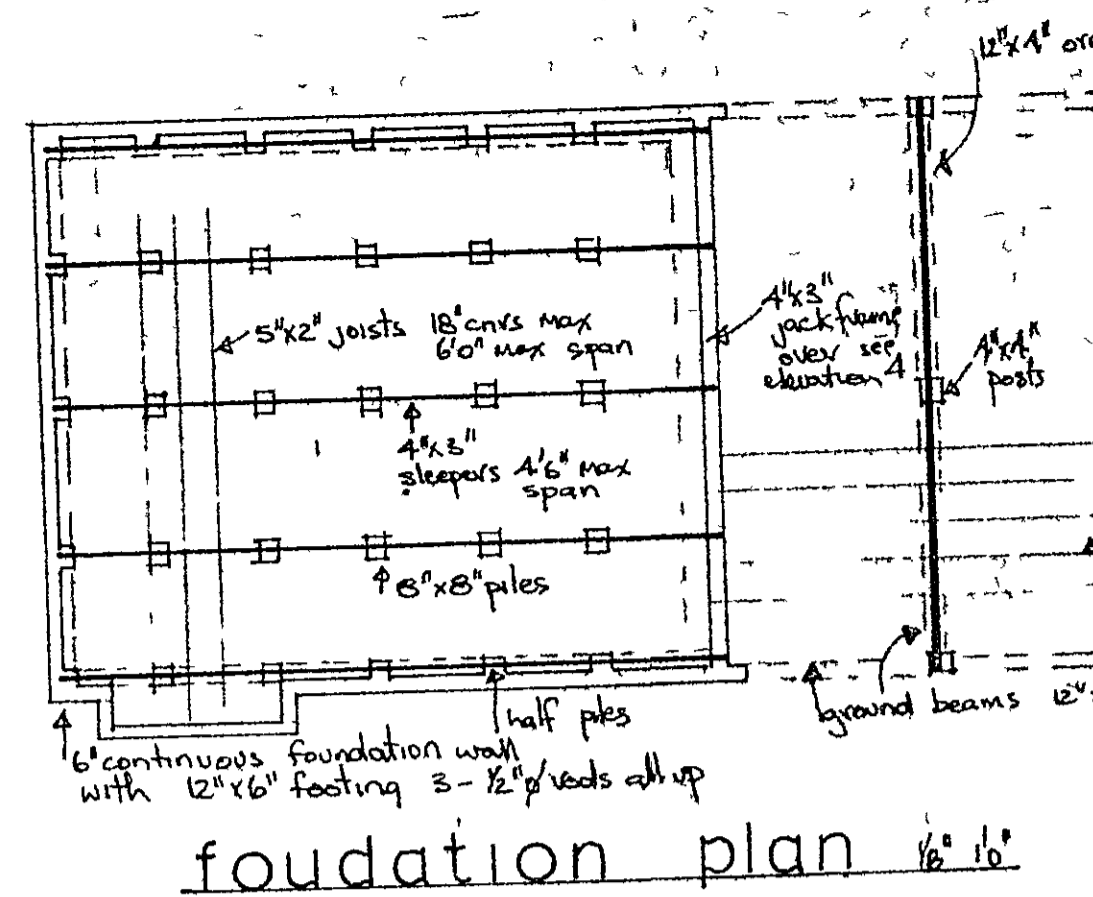 12"x4"
5"x2" joists 18" cnrs max
6'0" max span
4"x3"
jack frame
over see
elevation 4
4"x4"
posts
4"x3"
sleepers 4'6" max
span
8"x8" piles
half piles
ground beams 12"
6" continuous foundation wall
with 12"x6" footing 3-½"ø rods all up
foudation plan ⅛" 1'0"